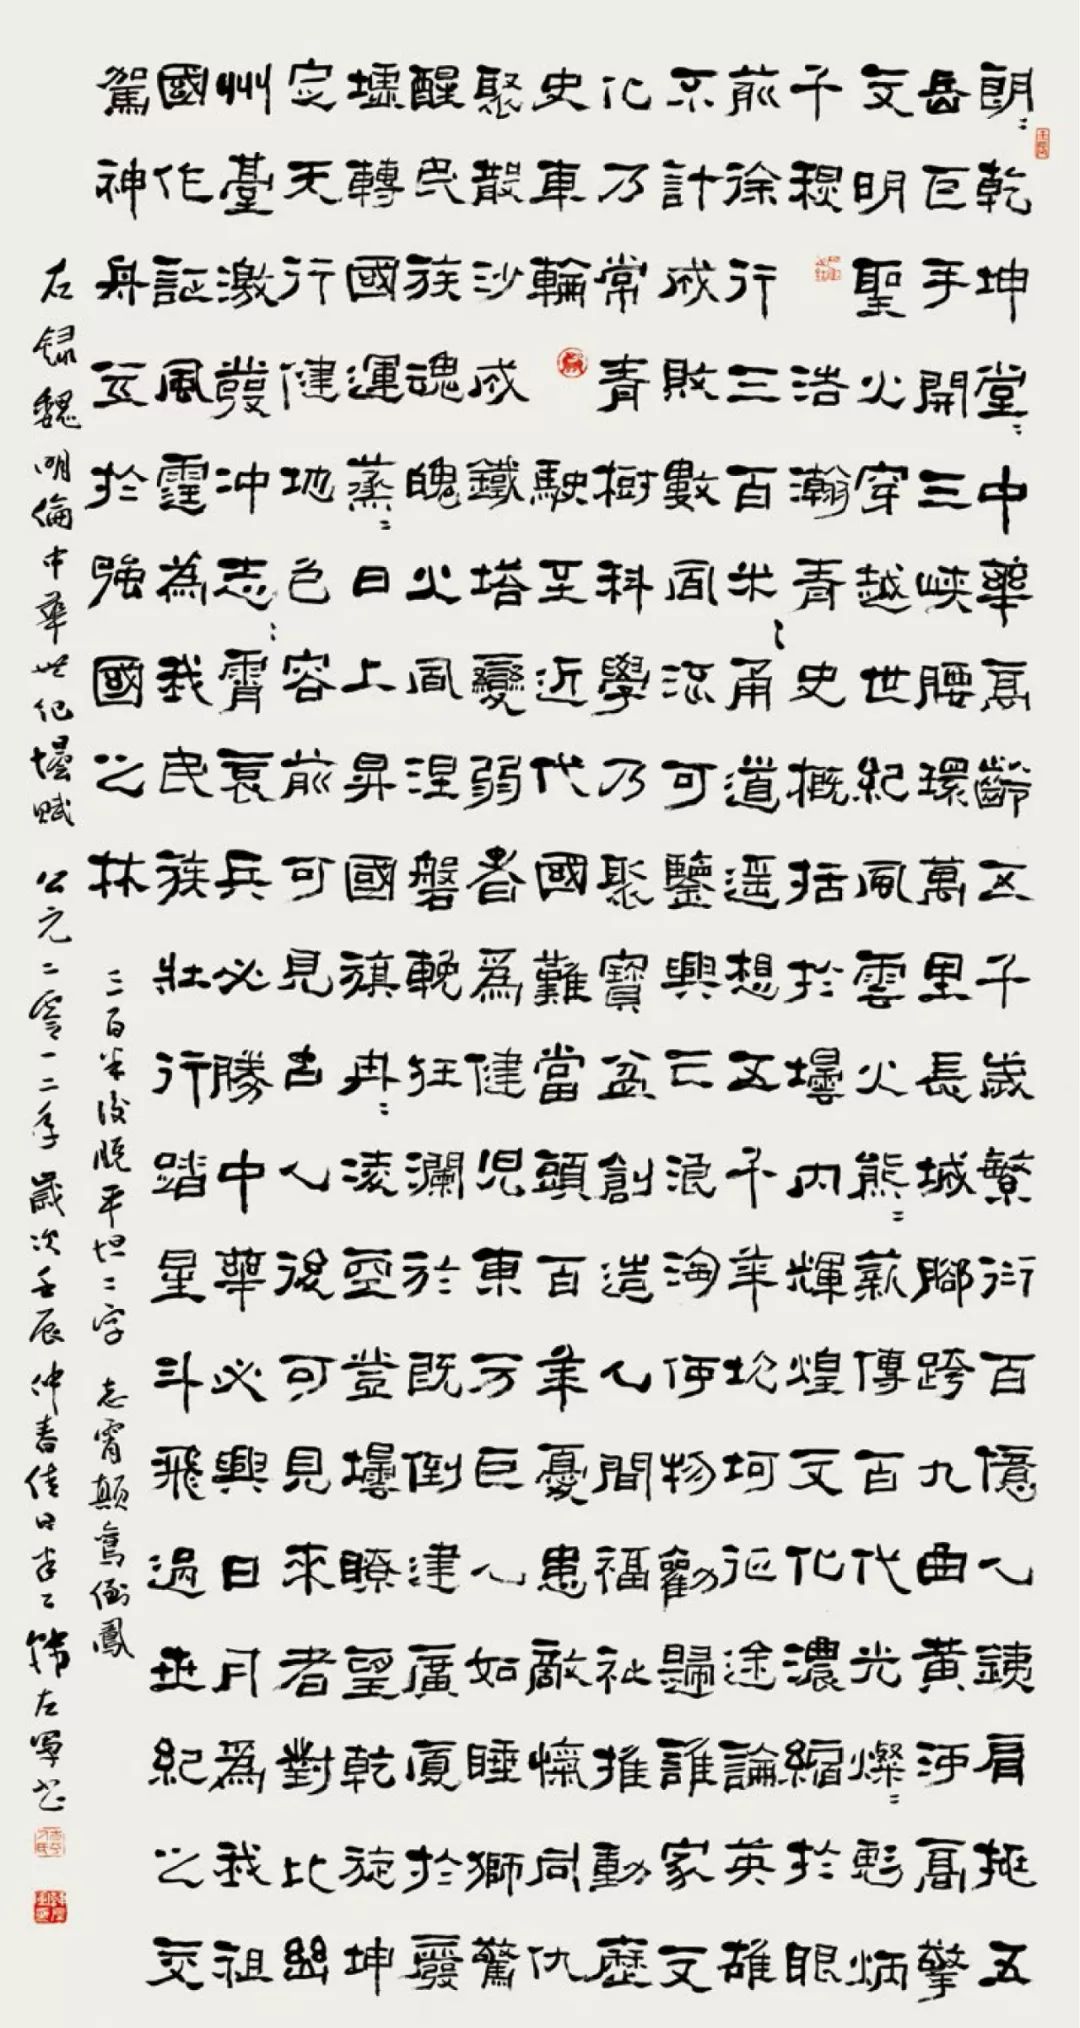 朗〻乾坤堂〻中華高齡五千歲繁衍百億人銕肩挺五
岳巨手開三峽腰環萬里長城腳跨九曲黃河高擎
文明聖火穿越世紀風雲火熊〻薪傳百代光燦〻彪炳
千稷浩瀚青史概括於壇內輝煌文化濃縮於眼
前徐行三百米〻甬道遥想五千年坎坷征途論英雄
不計成敗數風流可鑒興亡浪淘何物勸歸誰家文
化乃常青樹科學乃聚寶盆創造人間福祉推動歷
史車輪駛至近代國難當頭百年憂患敵愾同仇
聚散沙成鐵塔變弱者為健兒東方巨人如睡獅驚
醒民族魂魄火風涅磐輓狂瀾於既倒建廣廈於廢
墟轉國運蒸〻日上昇國旗冉〻淩空登壇瞭望乾旋坤
定天行健地色容前可見古人後可見來者對比幽
州臺激發沖志〻霄哀兵必勝中華必興日月為我祖
國作証風霆為我民族壯行踏星斗飛過世紀之交
駕神舟立於強國之林
三百米後脫平坦二字 志霄顛鸞倒鳳
左錄魏明倫中華世紀壇賦 公元二零一二年歲次壬辰仲春佳日韓左軍書